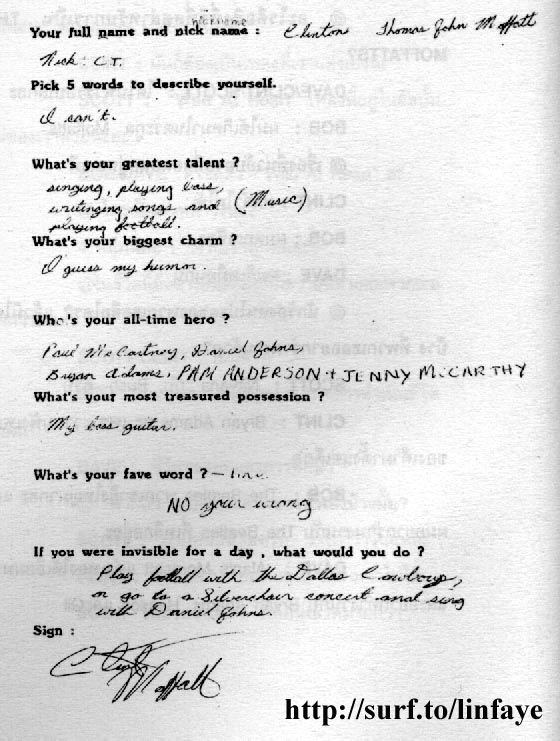 Your full name and nick name : Clinton Thomas John Moffatt
Nick : C.T.
Pick 5 words to describe yourself.
I can't.
What's your greatest talent ?
singing, playing bass,
writinging songs and (Music)
playing football.
What's your biggest charm ?
I guess my humor.
Who's your all-time hero ?
Paul McCartney, Daniel Johns,
Bryan Adams, PAM ANDERSON + JENNY McCARTHY
What's your most treasured possession ?
My bass guitar.
What's your fave word ? –
NO your wrong
If you were invisible for a day , what would you do ?
Play football with the Dallas Cowboys,
or go to a Silverchair concert and sing
with Daniel Johns.
Sign :
Moffatt
http://surf.to/linfaye